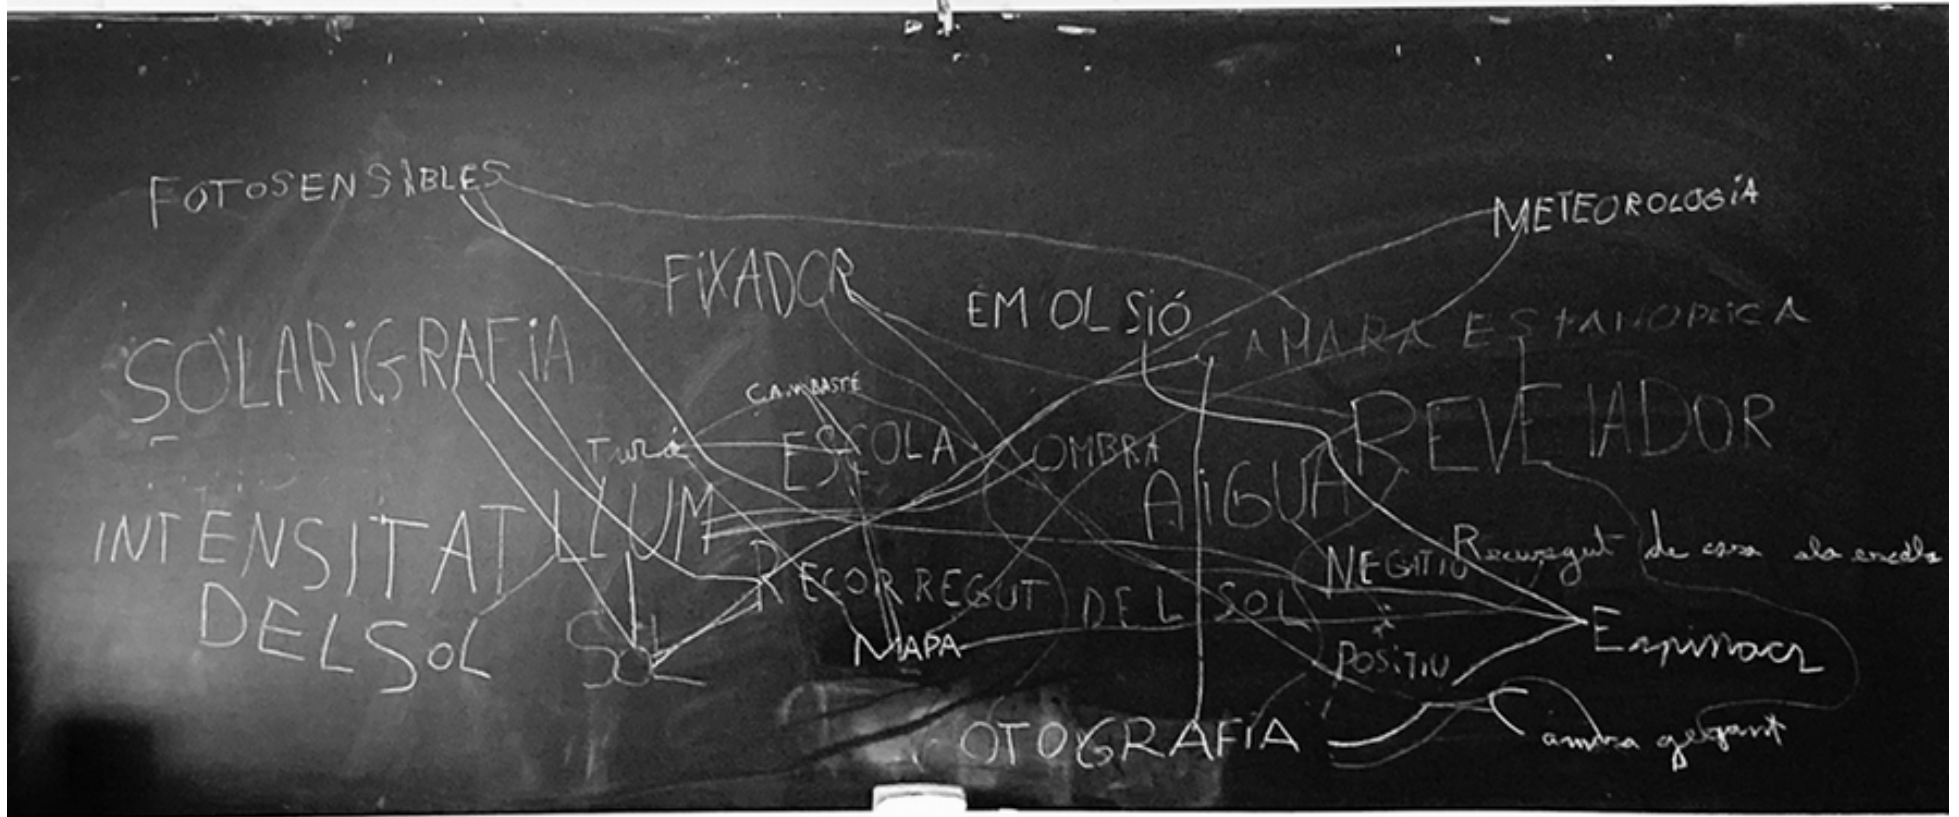 FOTOSENSABLES
METEOROLOGiA
FiXADOR
EMOLSiÓ
CAMARA ESTANOPEICA
SOLARiGRAFiA
CAN BASTÉ
REVELADOR
Turó
ESCOLA
OMBRA
AiGUA
INTENSITAT
DEL SOL
LLUM
Recurregut de casa ala escola
NEGITIU
RECORREGUT DEL SOL
SOL
MAPA
Espinacs
POSITIU
OTOGRAFiA
Camra gegant